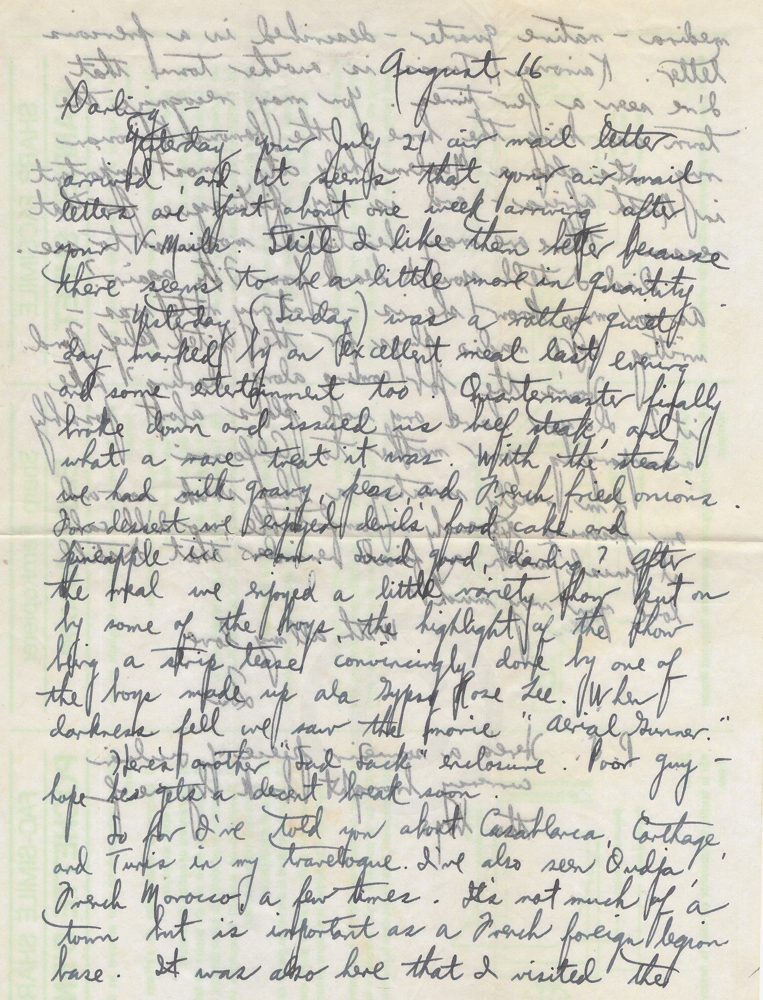 August 16
Darling -
Yesterday your July 21 air mail letter
arrived, and it seems that your air mail
letters are just about one week arriving after
your V-Mails. Still I like them better because
there seems to be a little more in quantity.
Yesterday (Sunday) was a rather quiet
day marked by an excellent meal last evening
and some entertainment too. Quartermaster finally
broke down and issued us beef steak, and
what a rare treat it was. With the steak
we had milk gravy, peas, and French fried onions.
For dessert we enjoyed devils food cake and
pineapple ice cream. Sound good, darling? After
the meal we enjoyed a little variety show put on
by some of the boys, the highlight of the show
being a strip tease convincingly done by one of
the boys made up ala Gypsy Rose Lee. When
darkness fell we saw the movie "Aerial Gunner."
Here's another "Sad Sack" enclosure. Poor guy -
hope he gets a decent break soon.
So far I've told you about Casablanca, Carthage,
and Tunis in my travelogue. I've also seen Oudja,
French Morocco, a few times. It's not much of a
town but is important as a French foreign legion
base. It was also here that I visited the